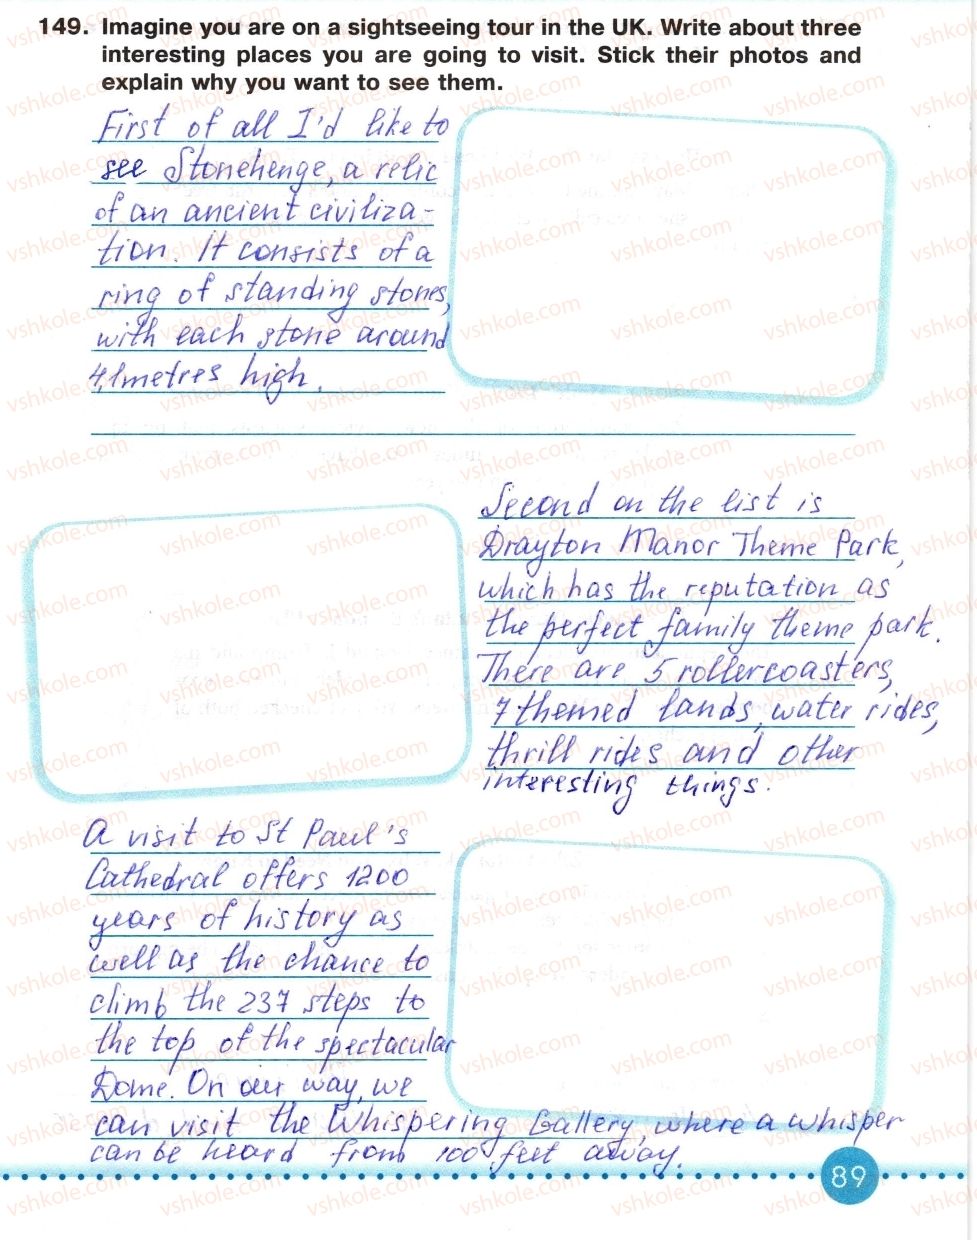 149. Imagine you are on a sightseeing tour in the UK. Write about three
interesting places you are going to visit. Stick their photos and
explain why you want to see them.
First of all I'd like to
see Stonehenge, a relic
of an ancient civiliza-
tion. It consists of a
ring of standing stones,
with each stone around
4,1 metres high.
Second on the list is
Drayton Manor Theme Park,
which has the reputation as
the perfect family theme park.
There are 5 rollercoasters,
7 themed lands, water rides,
thrill rides and other
interesting things.
A visit to St Paul's
Cathedral offers 1200
years of history as
well as the chance to
climb the 237 steps to
the top of the spectacular
Dome. On our way, we
can visit the Whispering Gallery, where a whisper
can be heard from 100 feet away.
89
vshkole.com